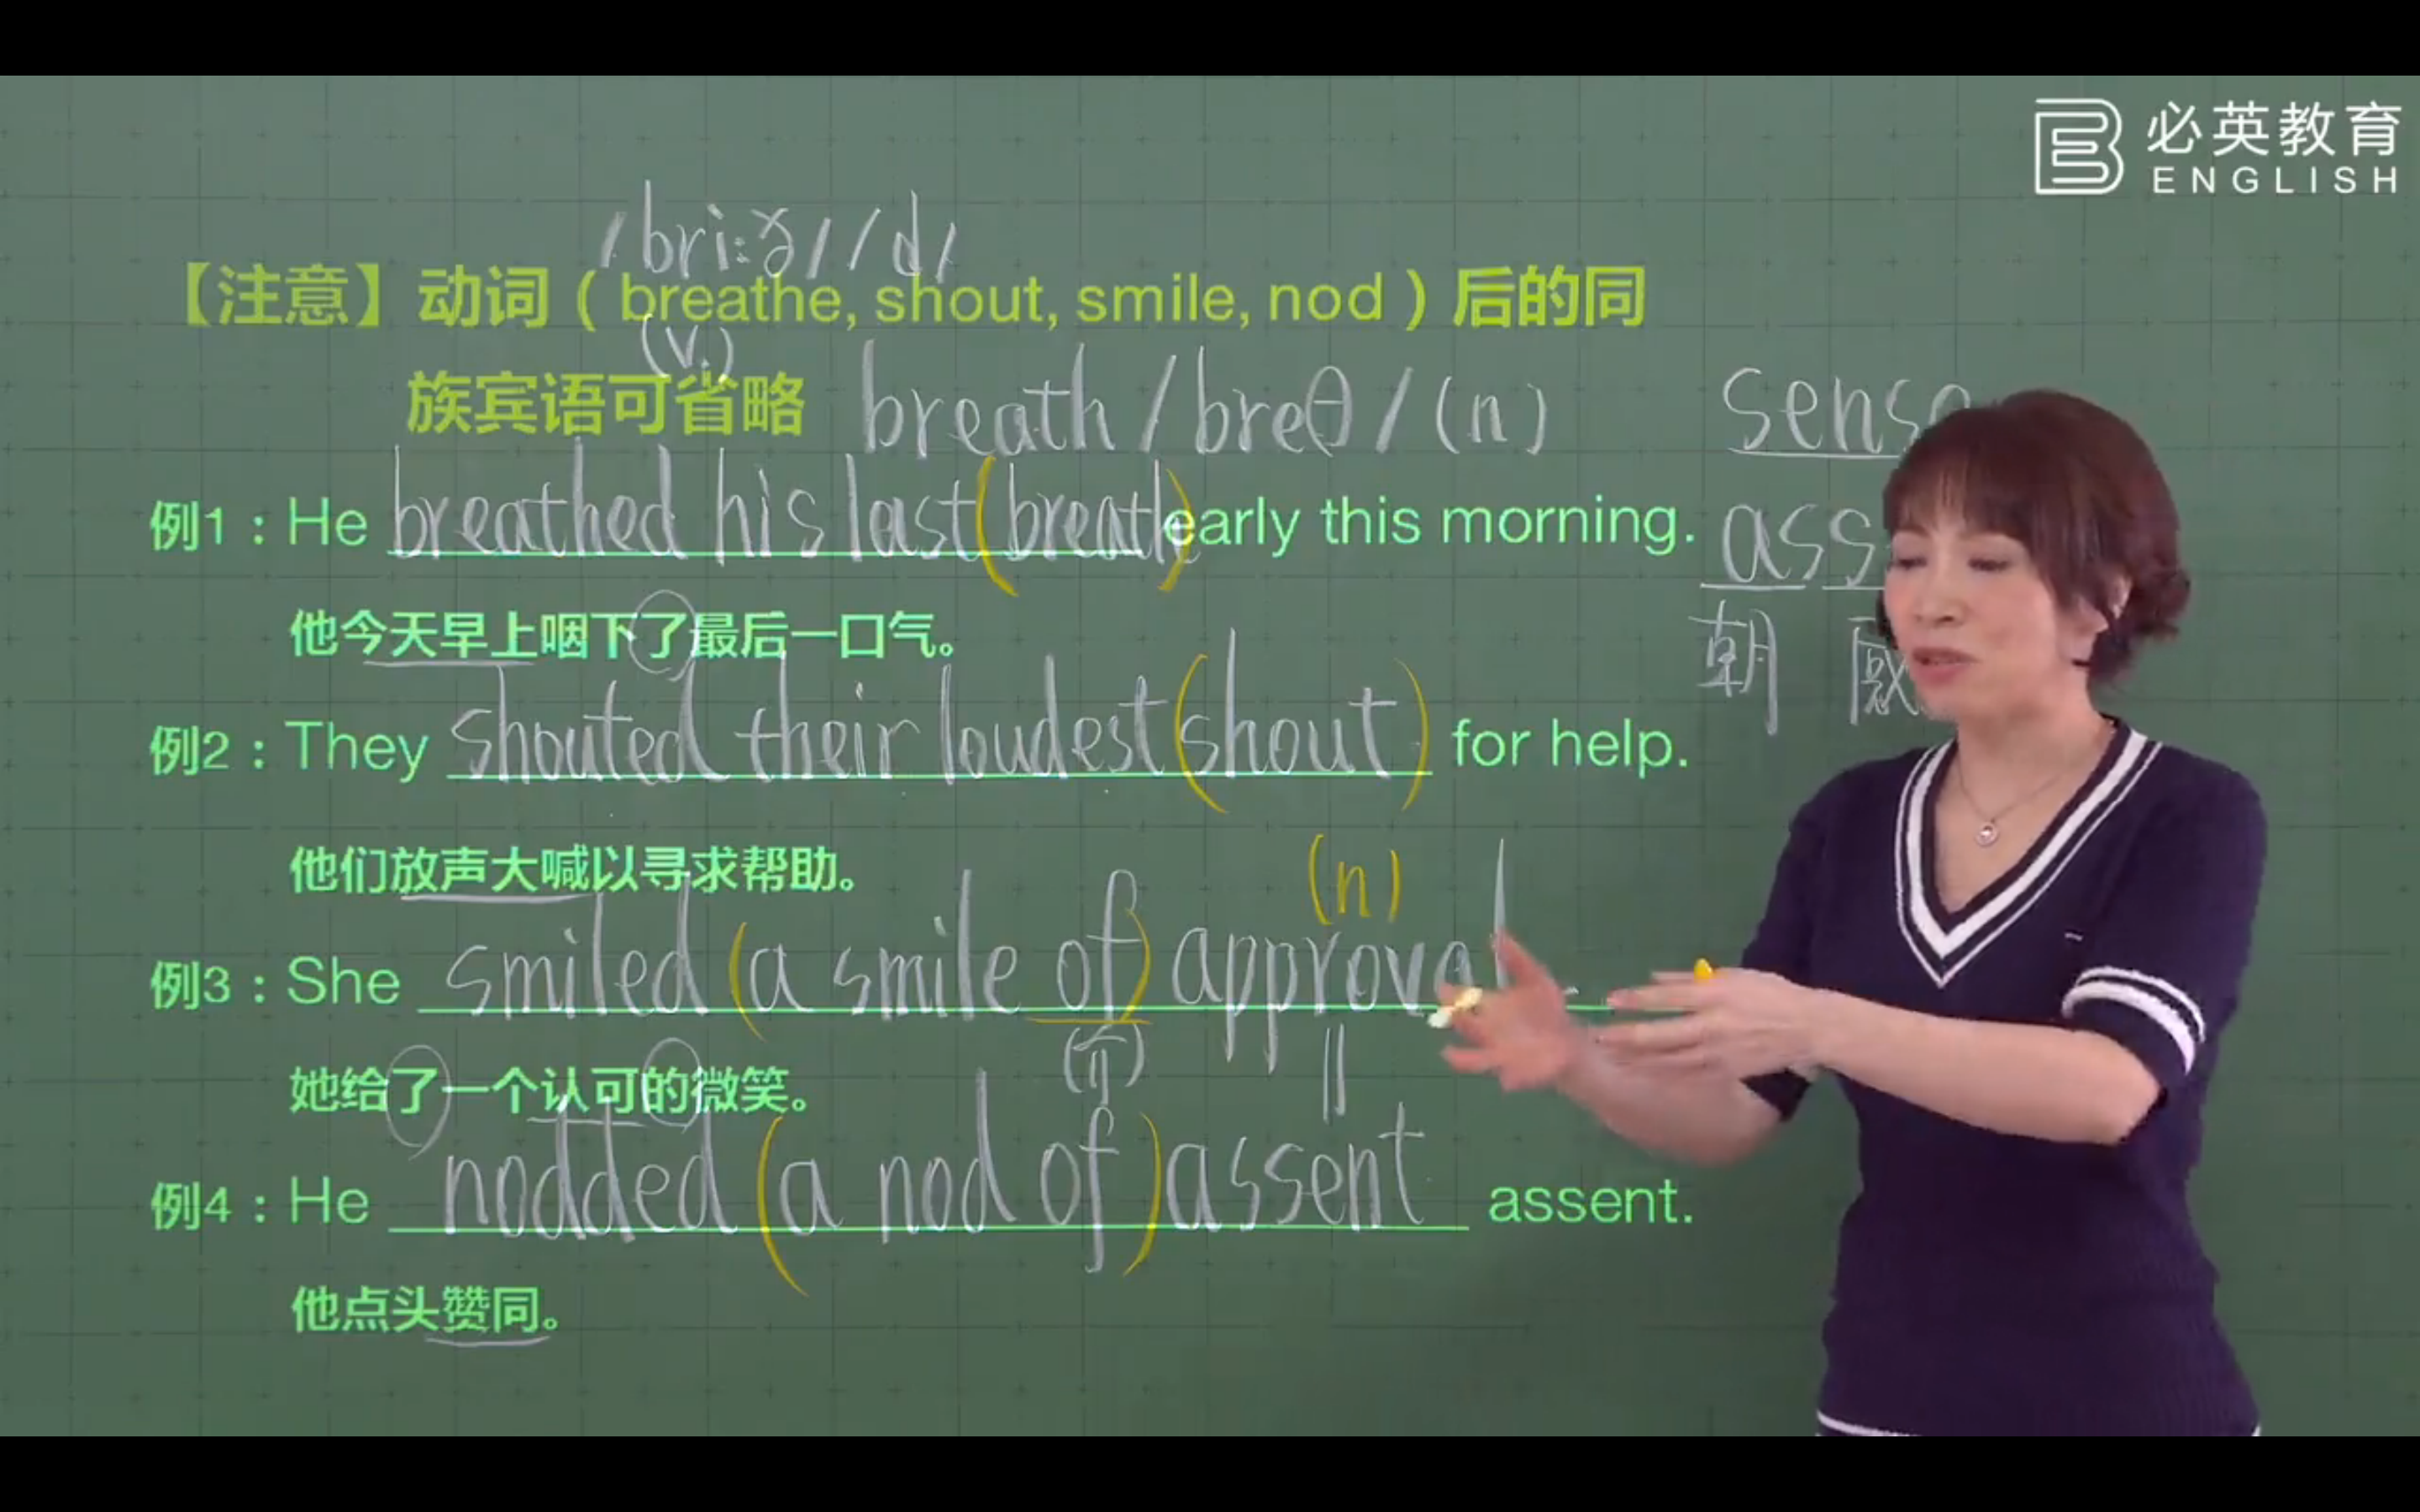 必英教育
ENGLISH
/bri:ð/ /d/
【注意】动词（breathe, shout, smile, nod）后的同
(v.)
族宾语可省略 breath /breθ/ (n)
sense
例1：He breathed his last (breath) early this morning.
ass
朝 感
他今天早上咽下了最后一口气。
例2：They shouted their loudest (shout) for help.
他们放声大喊以寻求帮助。
(n)
例3：She smiled (a smile of) approval.
(介) ||
她给了一个认可的微笑。
例4：He nodded (a nod of) assent assent.
他点头赞同。